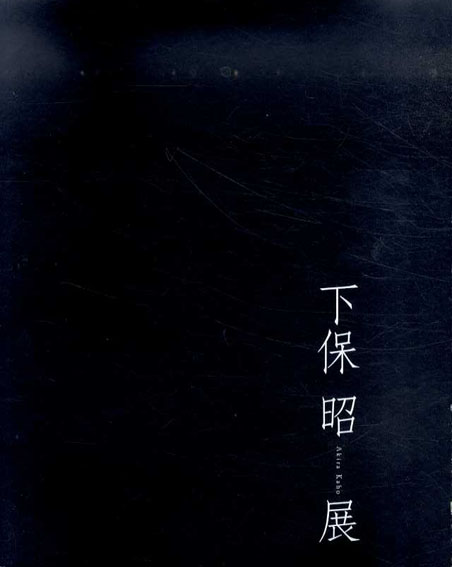 下保昭展
Akira Kaho